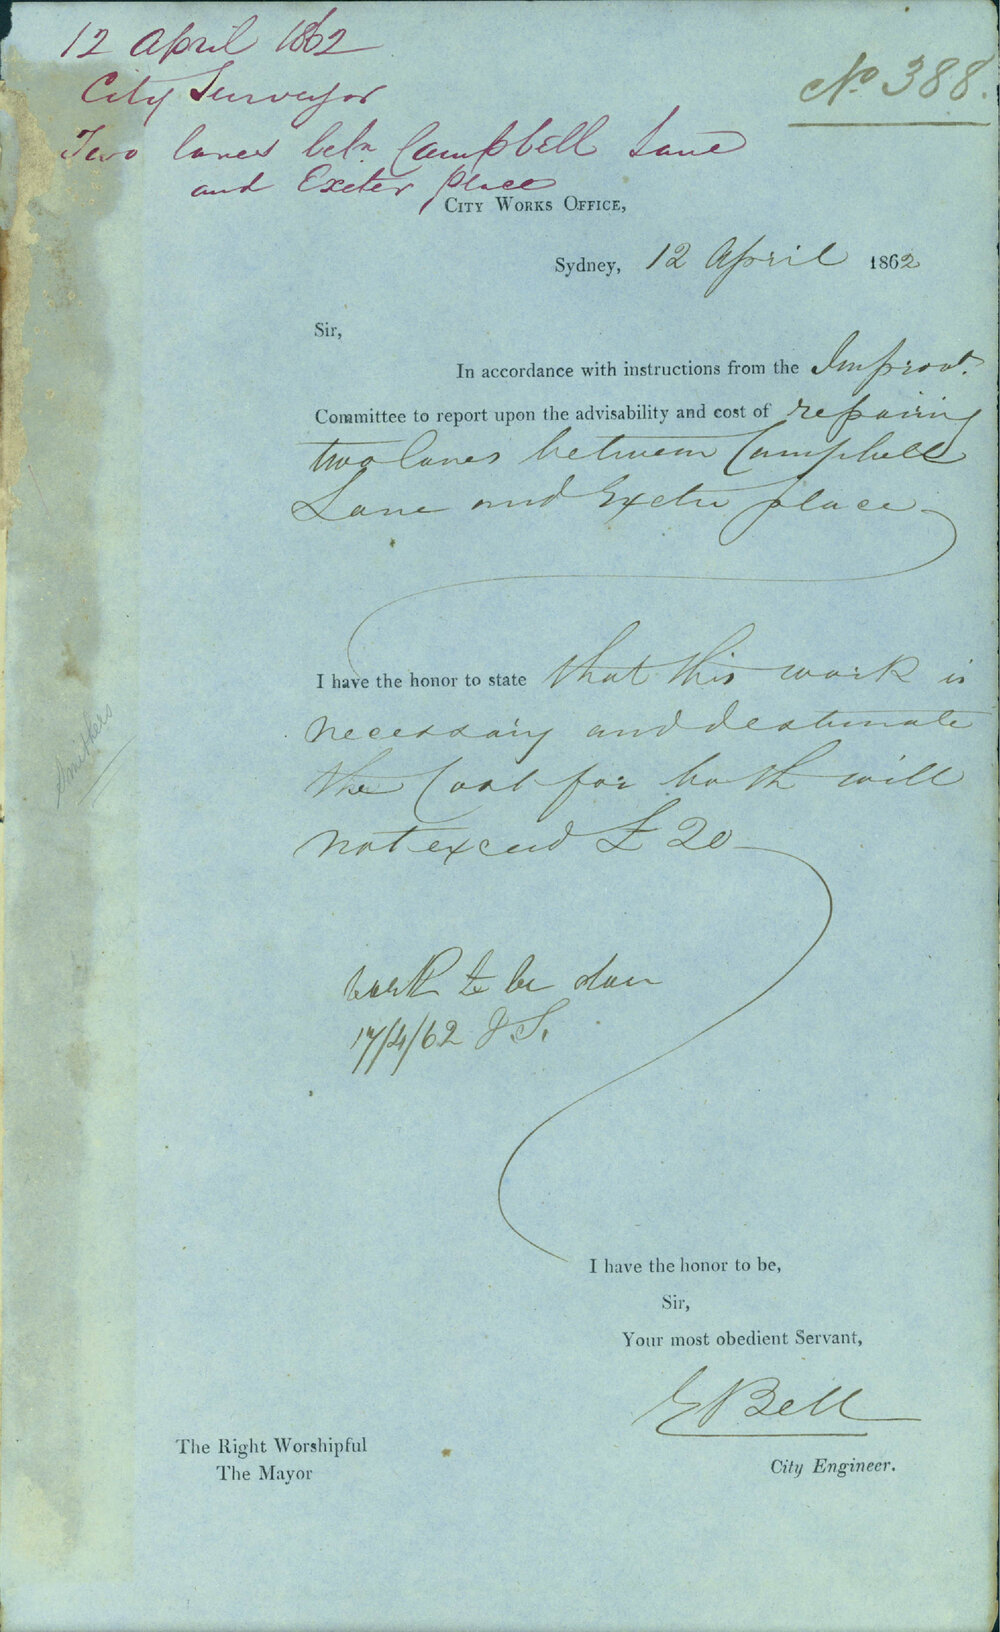 12 April 1862
City Surveyor
Two lanes betn Campbell Lane
and Exeter place
No 388.
City Works Office,
Sydney, 12 April 1862
Sir,
In accordance with instructions from the Improvt.
Committee to report upon the advisability and cost of repairing
two lanes between Campbell
Lane and Exeter place
I have the honor to state that this work is
necessary and estimate
the Cost for both will
not exceed £20
Smithers
work to be done
17/4/62 J S.
I have the honor to be,
Sir,
Your most obedient Servant,
E Bell
City Engineer.
The Right Worshipful
The Mayor